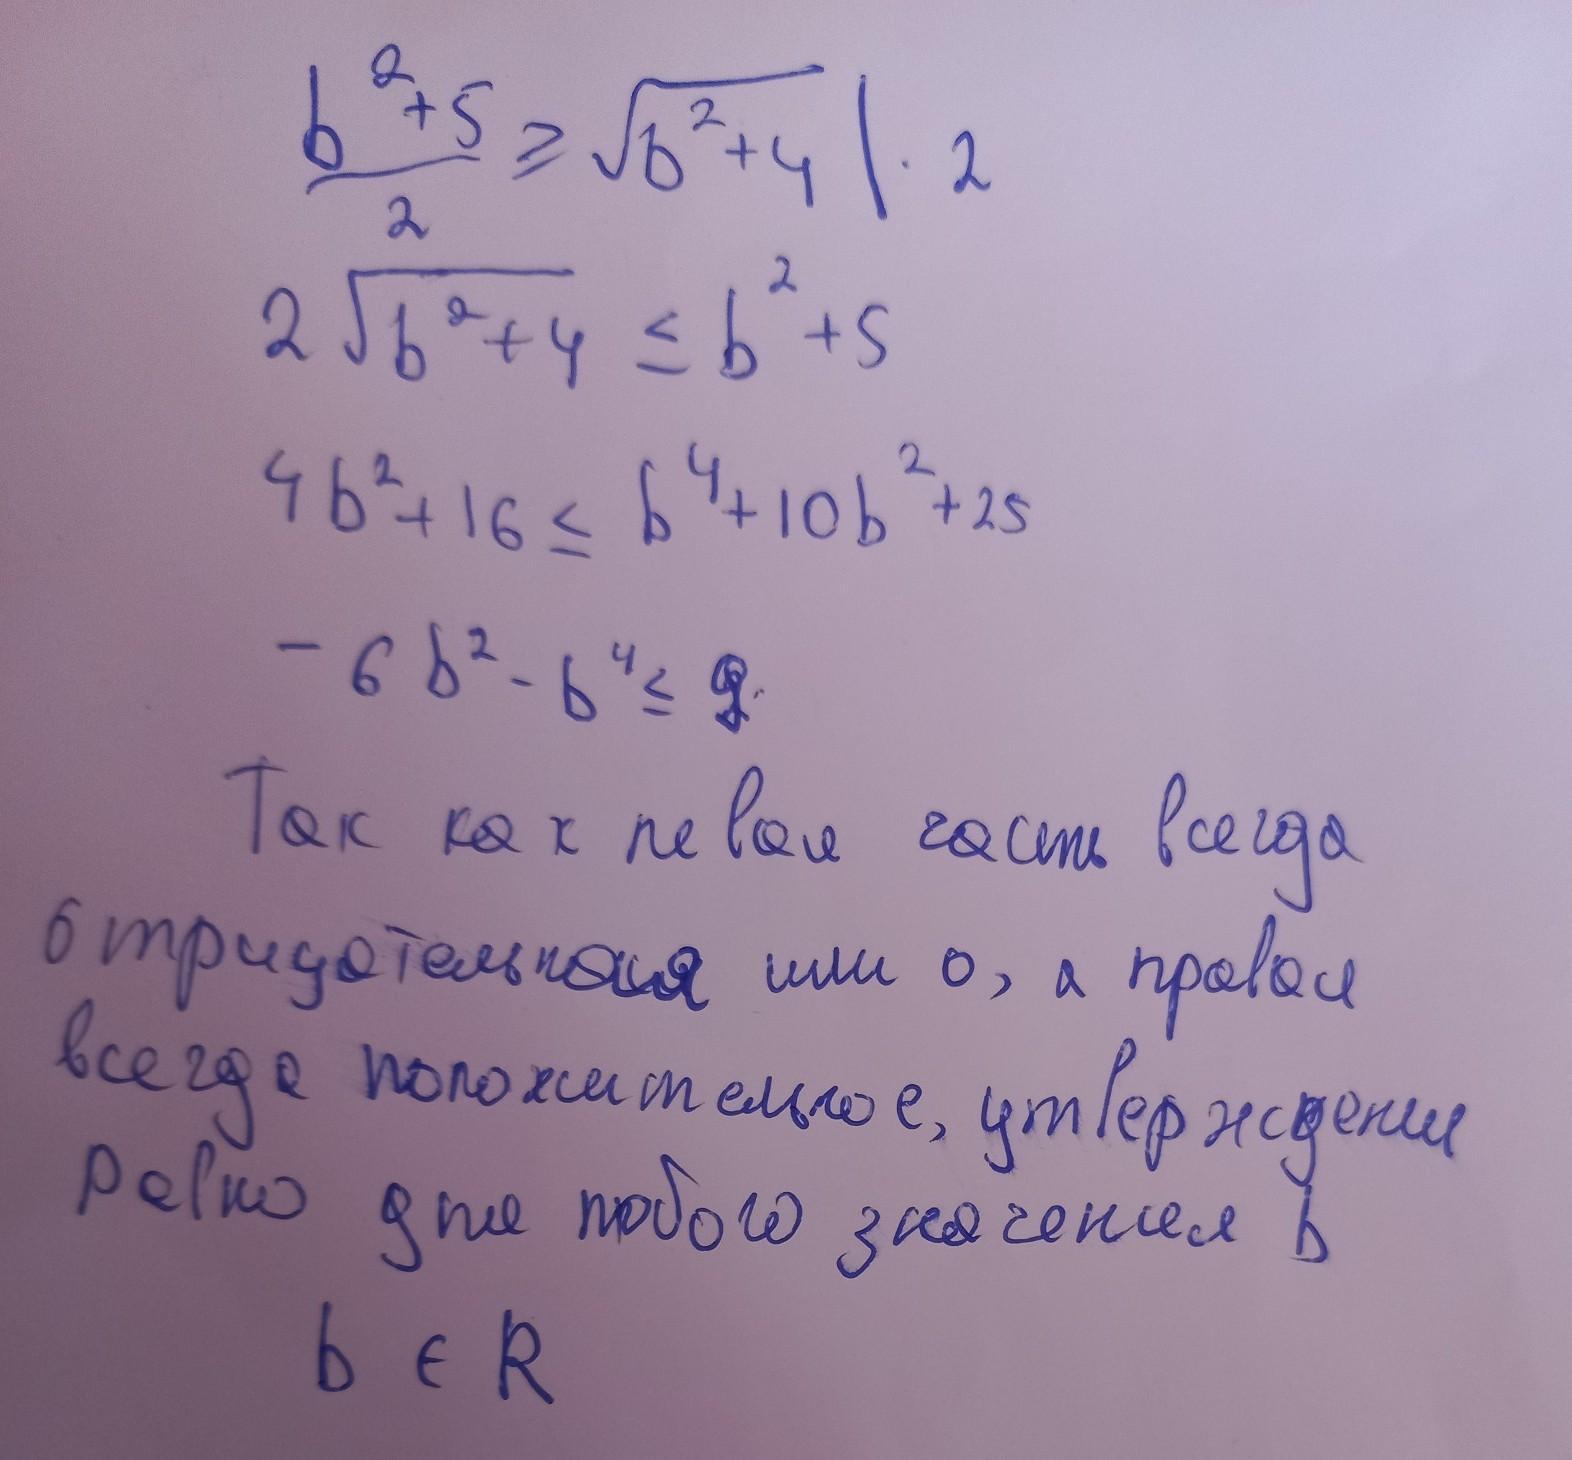 b²+5/2 ≥ √b²+4 | · 2
2√b²+4 ≤ b²+5
4b²+16 ≤ b⁴+10b²+25
-6b²-b⁴ ≤ 9
Так как левая часть всегда
отрицательная или 0, а правая
всегда положительное, утверждение
равно для любого значения b
b ∈ R